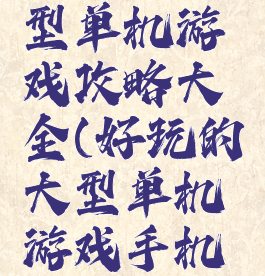 型单机游
戏攻略大
全(好玩的
大型单机
游戏手机